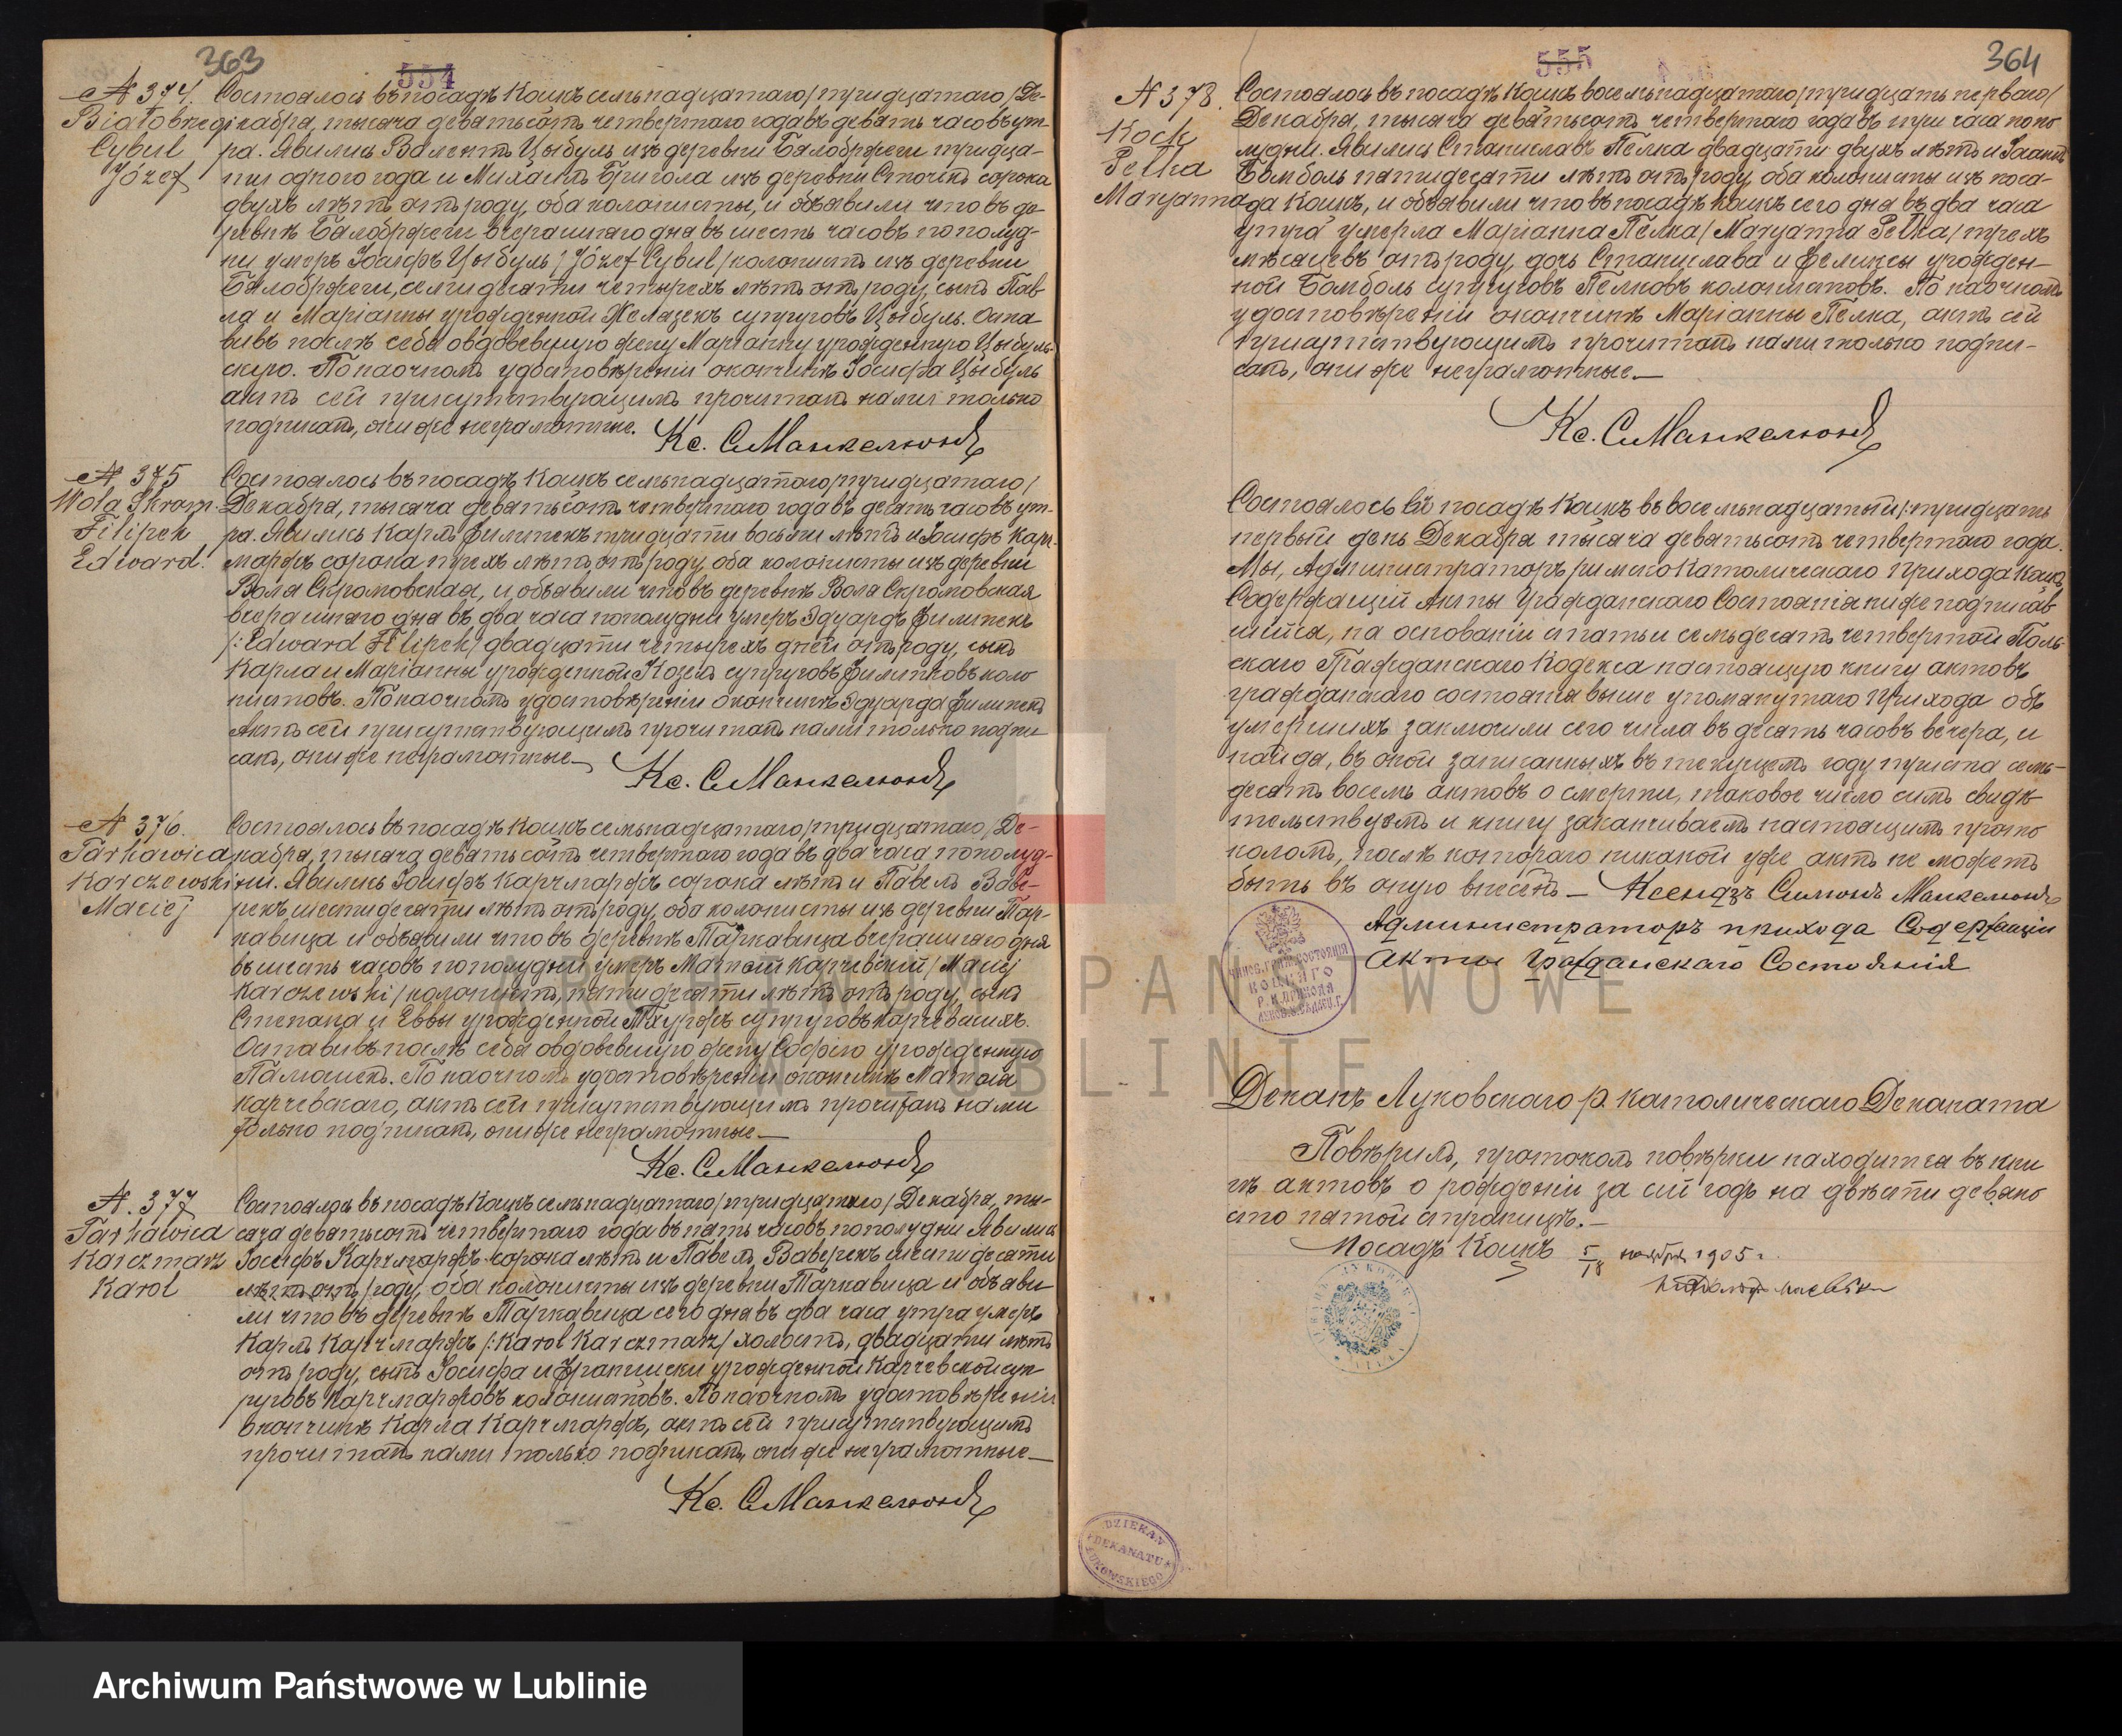 363
554
№ 374.
Białobrzegi
Cybul
Józef
Состоялось въ посадѣ Коцкъ семьнадцатаго /тридцатаго/ Де-
кабря, тысяча девятьсотъ четвертаго года въ девять часовъ ут-
ра. Явились Валентъ Цыбуль изъ деревни Бялобржеги тридца-
ти одного года и Михаилъ Бригола изъ деревни Сточекъ сорока
двухъ лѣтъ отъ роду, оба колонисты, и объявили что въ де-
ревнѣ Бялобржеги вчерашняго дня въ шесть часовъ пополуд-
ни умеръ Іосифъ Цыбуль /Józef Cybul/ колонистъ изъ деревни
Бялобржеги, семидесяти четырехъ лѣтъ отъ роду, сынъ Пав-
ла и Маріанны урожденной Желязекъ супруговъ Цыбуль. Оста
вивъ послѣ себя овдовевшую жену Маріанну урожденную Цыбуль-
скую. По наочномъ удостовѣреніи о кончинѣ Іосифа Цыбуль
актъ сей присутствующимъ прочитанъ нами только
подписанъ, они же неграмотные.
Кс. С Манкелюнъ
№ 375
Wola Skrom.
Filipek
Edward.
Состоялось въ посадѣ Коцкъ семьнадцатаго /тридцатаго/
Декабря, тысяча девятьсотъ четвертаго года въ десять часовъ ут-
ра. Явились Карлъ Филипекъ тридцати восьми лѣтъ и Іосифъ Карч-
маржъ сорока трехъ лѣтъ отъ роду, оба колонисты изъ деревни
Воля Скромовская, и объявили что въ деревнѣ Воля Скромовская
вчерашняго дня въ два часа пополудни умеръ Эдуардъ Филипекъ
/:Edward Filipek/ двадцати четырехъ дней отъ роду, сынъ
Карла и Маріанны урожденной Козелъ супруговъ Филипковъ коло
нистовъ. По наочномъ удостовѣреніи о кончинѣ Эдуарда Филипекъ
актъ сей присутствующимъ прочитанъ нами только подпи
санъ, они же неграмотные
Кс. С Манкелюнъ
№ 376.
Tarkawica
Karczewski
Maciej
Состоялось въ посадѣ Коцкъ семьнадцатаго /тридцатаго/ Де-
кабря, тысяча девятьсотъ четвертаго года въ два часа пополуд-
ни. Явились Іосифъ Карчмаржъ сорока лѣтъ и Павелъ Ваве-
рекъ шестидесяти лѣтъ отъ роду, оба колонисты изъ деревни Тар-
кавица и объявили что въ деревнѣ Таркавица вчерашняго дня
въ шесть часовъ пополудни умеръ Матвѣй Карчевскій /Maciej
Karczewski/ колонистъ, пятидесяти лѣтъ отъ роду, сынъ
Степана и Еввы урожденной Тхуржъ супруговъ Карчевскихъ.
Оставивъ послѣ себя овдовевшую жену Софію урожденную
По наочномъ удостовѣреніи о кончинѣ Матвѣя
Карчевскаго, актъ сей присутствующимъ прочитанъ нами
только подписанъ, они же неграмотные
Кс. С Манкелюнъ
№ 377
Tarkawica
Karczmarz
Karol
Состоялось въ посадѣ Коцкъ семьнадцатаго /тридцатаго/ Декабря, ты-
сяча девятьсотъ четвертаго года въ пять часовъ пополудни Явились
Іосифъ Карчмаржъ сорока лѣтъ и Павелъ Ваверекъ шестидесяти
лѣтъ отъ роду, оба колонисты изъ деревни Таркавица и объяви
ли что въ деревнѣ Таркавица сего дня въ два часа утра умеръ
Карлъ Карчмаржъ /:Karol Karczmarz/ холостъ, двадцати лѣтъ
отъ роду, сынъ Іосифа и Франциски урожденной Карчевской суп
руговъ Карчмаржовъ колонистовъ. По наочномъ удостовѣреніи
о кончинѣ Карла Карчмаржъ, актъ сей присутствующимъ
прочитанъ нами только подписанъ, они же неграмотные
Кс. С Манкелюнъ
364
555
№ 378.
Kock
Pełka
Maryanna
Состоялось въ посадѣ Коцкъ восемьнадцатаго /тридцать перваго/
Декабря, тысяча девятьсотъ четвертаго года въ три часа попо
лудни. Явились Станиславъ Пелка двадцати двухъ лѣтъ и Іоакимъ
Бомболь пятидесяти лѣтъ отъ роду, оба колонисты изъ поса-
да Коцкъ, и объявили что въ посадѣ Коцкъ сего дня въ два часа
утра умерла Маріанна Пелка /Maryanna Pełka/ трехъ
мѣсяцевъ отъ роду, дочь Станислава и Феликсы урожден-
ной Бомболь супруговъ Пелковъ колонистовъ. По наочномъ
удостовѣреніи о кончинѣ Маріанны Пелка, актъ сей
присутствующимъ прочитанъ нами только подпи-
санъ, они же неграмотные.
Кс. С Манкелюнъ
Состоялось въ посадѣ Коцкъ въ восемьнадцатый /:тридцать
первый день Декабря тысяча девятьсотъ четвертаго года.
Мы, Администраторъ римско Католическаго Прихода Коцкъ
Содержащій Акты Гражданскаго Состоянія нижеподписав
шійся, на основаніи статьи семьдесятъ четвертой Поль-
скаго Гражданскаго Кодекса настоящую книгу актовъ
гражданскаго состоянія выше упомянутаго Прихода объ
умершихъ заключили сего числа въ десять часовъ вечера, и
найдя, въ оной записанныхъ въ текущемъ году триста семь-
десятъ восемь актовъ о смерти, таковое число симъ свидѣ
тельствуемъ и книгу заканчиваемъ настоящимъ прото
коломъ, послѣ котораго никакой уже актъ не можетъ
быть въ оную внесенъ – Ксендзъ Симонъ Манкелюнъ
Администраторъ прихода Содержащій
Акты Гражданскаго Состоянія
Деканъ Луковскаго р. католическаго Деканата
Повѣрилъ, протоколъ повѣрки находится въ кни
гѣ актовъ о рожденіи за сій годъ на двѣсти девяно
сто пятой страницѣ.–
Посадъ Коцкъ 5/18 ноября 1905 г.
DZIEKAN
DEKANATU
ŁUKOWSKIEGO
ARCHIWUM PAŃSTWOWE
W LUBLINIE
Archiwum Państwowe w Lublinie